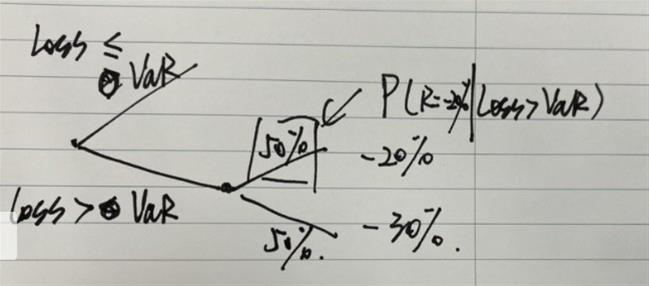 Loss ≤
VaR
P(R=-20%|Loss>VaR)
50%
-20%
Loss > VaR
50%.
-30%.